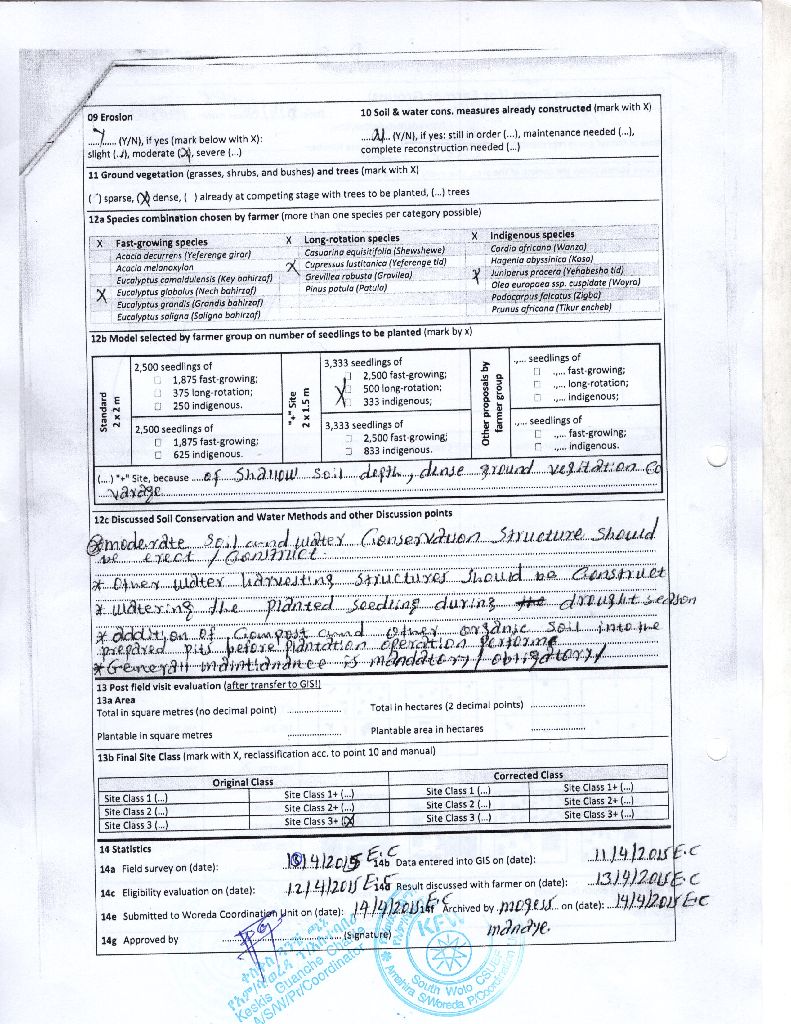 09 Erosion
10 Soil & water cons. measures already constructed (mark with X)
..Y... (Y/N), if yes (mark below with X):
slight (../), moderate (X), severe (...)
...N.. (Y/N), if yes: still in order (...), maintenance needed (...),
complete reconstruction needed (...)
11 Ground vegetation (grasses, shrubs, and bushes) and trees (mark with X)
( ) sparse, (X) dense, ( ) already at competing stage with trees to be planted, (...) trees
12a Species combination chosen by farmer (more than one species per category possible)
X Fast-growing species
Acacia decurrens (Yeferenge girar)
Acacia melanoxylon
Eucalyptus camaldulensis (Key bahirzaf)
X Eucalyptus globolus (Nech bahirzaf)
Eucalyptus grandis (Grandis bahirzaf)
Eucalyptus saligna (Saligna bahirzaf)
X Long-rotation species
Casuarina equisitifolia (Shewshewe)
X Cupressus lustitanica (Yeferenge tid)
Grevillea robusta (Gravilea)
Pinus patula (Patula)
X Indigenous species
Cordia africana (Wanza)
Hagenia abyssinica (Koso)
X Juniperus procera (Yehabesha tid)
Olea europaea ssp. cuspidate (Wayra)
Podocarpus falcatus (Zigba)
Prunus africana (Tikur encheb)
12b Model selected by farmer group on number of seedlings to be planted (mark by X)
Standard
2 x 2 m
2,500 seedlings of
1,875 fast-growing;
375 long-rotation;
250 indigenous.
2,500 seedlings of
1,875 fast-growing;
625 indigenous.
"+" Site
2 x 1.5 m
3,333 seedlings of
2,500 fast-growing;
X 500 long-rotation;
333 indigenous;
3,333 seedlings of
2,500 fast-growing;
833 indigenous.
Other proposals by
farmer group
.,... seedlings of
.,... fast-growing;
.,... long-rotation;
.,... indigenous;
.,... seedlings of
.,... fast-growing;
.,... indigenous.
(...) "+" Site, because ...of shallow soil depth, dense ground vegitation Co
varage
12c Discussed Soil Conservation and Water Methods and other Discussion points
* moderate soil and water Conservation structure should
be erect / Construct
* Other water harvesting structures should be Construct
* watering the planted seedling during the drought season
* addition of Compost and other organic soil into the
prepared pits before plantation operation performe
* Generall maintianance is mandatory / obligatory /
13 Post field visit evaluation (after transfer to GIS!)
13a Area
Total in square metres (no decimal point) ................
Total in hectares (2 decimal points) ................
Plantable in square metres ................
Plantable area in hectares ................
13b Final Site Class (mark with X, reclassification acc. to point 10 and manual)
Original Class
Corrected Class
Site Class 1 (...) Site Class 1+ (...) Site Class 1 (...) Site Class 1+ (...)
Site Class 2 (...) Site Class 2+ (...) Site Class 2 (...) Site Class 2+ (...)
Site Class 3 (...) Site Class 3+ (X) Site Class 3 (...) Site Class 3+ (...)
14 Statistics
14a Field survey on (date): 10/4/2015 E.C 14b Data entered into GIS on (date): 11/4/2015 E.C
14c Eligibility evaluation on (date): 12/4/2015 E.C 14d Result discussed with farmer on (date): 13/4/2015 E.C
14e Submitted to Woreda Coordination Unit on (date): 14/4/2015 E.C 14f Archived by mogess on (date): 14/4/2015 E.C
mandaye.
14g Approved by ................ (Signature)
KFW
South Wolo
Amahira S/Woreda P/Coordination
A/S/W/Pr/Coordinator